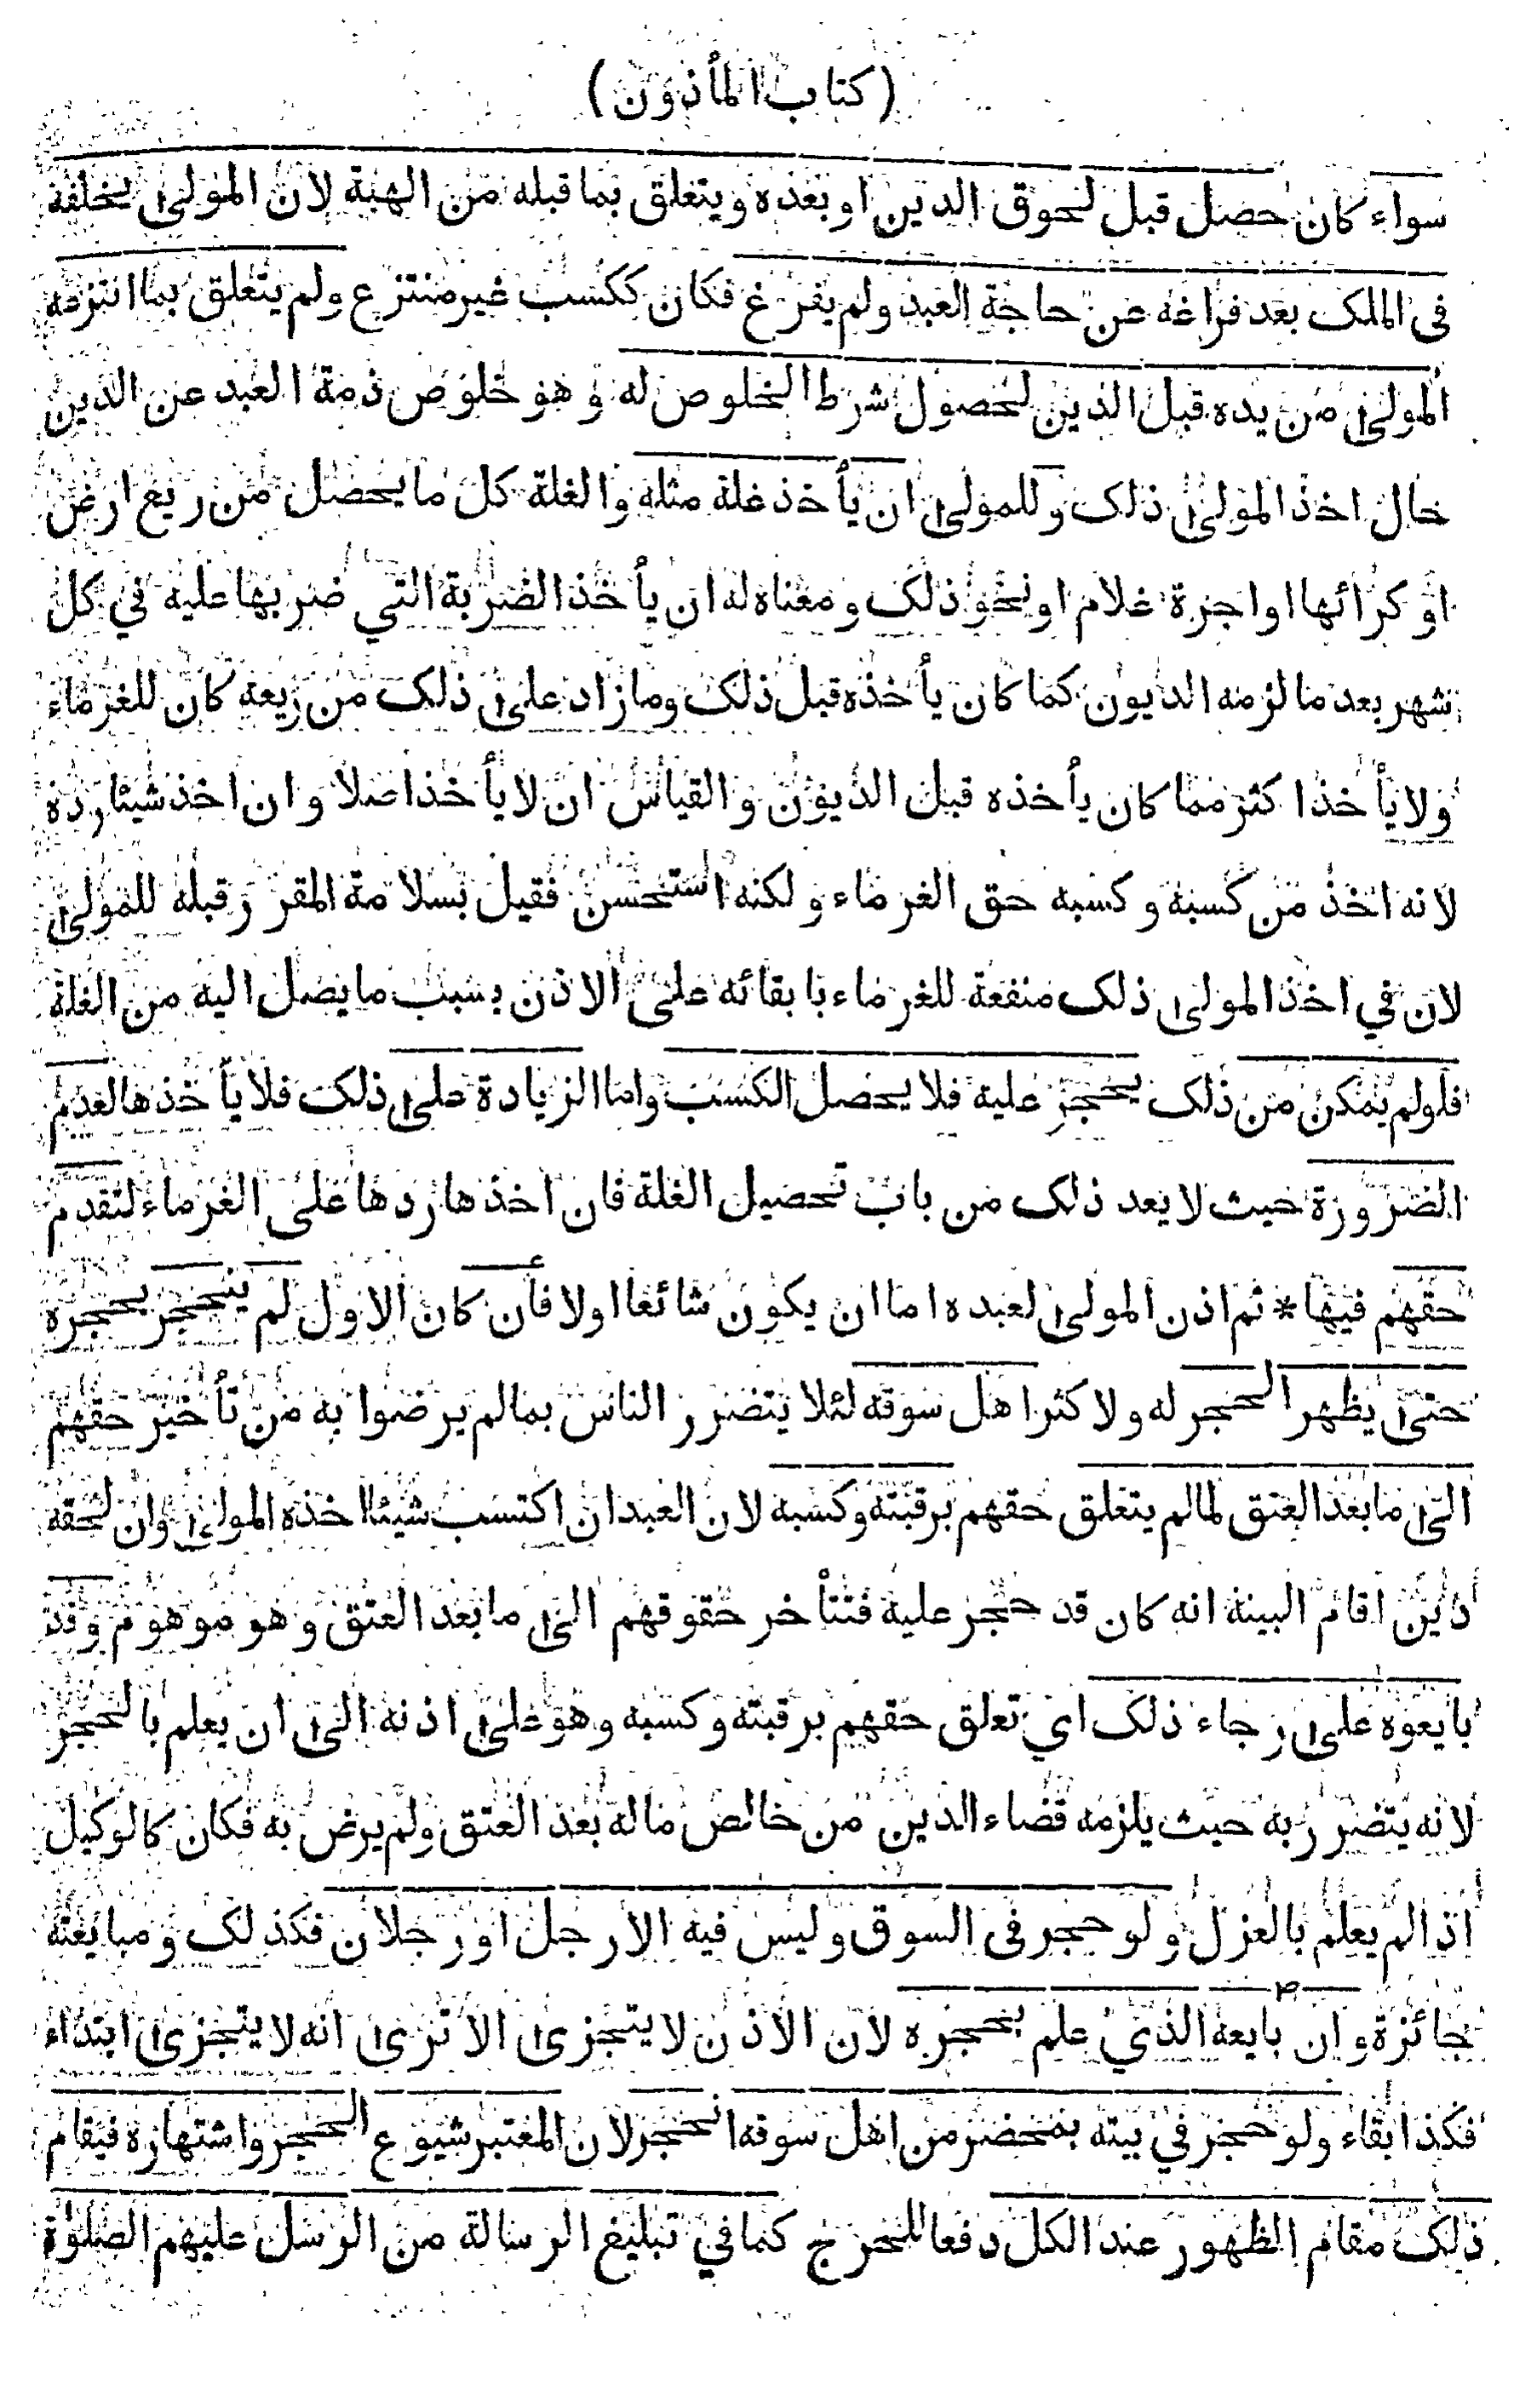 (كتاب المأذون)
سواء كان حصل قبل لحوق الدين او بعده ويتعلق بما قبله من الهبة لان المولى يخلفه
فى الملك بعد فراغه عن حاجة العبد ولم يفرغ فكان ككسب غير منتزع ولم يتعلق بما انتزعه
المولى من يده قبل الدين لحصول شرط الخلوص له و هو خلوص ذمة العبد عن الدين
حال اخذ المولى ذلك وللمولى ان يأخذ غلة مثله والغلة كل ما يحصل من ريع ارض
او كرائها او اجرة غلام او نحو ذلك و معناه له ان يأخذ الضربة التي ضربها عليه في كل
شهر بعد ما لزمه الديون كما كان يأخذه قبل ذلك وما زاد على ذلك من ريعه كان للغرماء
ولا يأخذ اكثر مما كان يأخذه قبل الديون والقياس ان لا يأخذ اصلا وان اخذ شيئا رده
لانه اخذ من كسبه وكسبه حق الغرماء ولكنه استحسن فقيل بسلامة المقرر قبله للمولى
لان في اخذ المولى ذلك منفعة للغرماء با بقائه على الاذن بسبب ما يصل اليه من الغلة
فلو لم يمكن من ذلك يحجر عليه فلا يحصل الكسب واما الزيادة على ذلك فلا يأخذها لعدم
الضرورة حيث لا يعد ذلك من باب تحصيل الغلة فان اخذها ردها على الغرماء لتقدم
حقهم فيها * ثم اذن المولى لعبده اما ان يكون شائعا اولا فأن كان الاول لم ينحجر بحجره
حتى يظهر الحجر له ولا كثر اهل سوقه لئلا يتضرر الناس بما لم يرضوا به من تأخير حقهم
الى ما بعد العتق لما لم يتعلق حقهم برقبته وكسبه لان العبد ان اكتسب شيئا اخذه المولى وان لحقه
دين اقام البينة انه كان قد حجر عليه فتتأخر حقوقهم الى ما بعد العتق وهو موهوم وقد
بايعوه على رجاء ذلك اي تعلق حقهم برقبته وكسبه وهو على اذنه الى ان يعلم بالحجر
لانه يتضرر به حيث يلزمه قضاء الدين من خالص ماله بعد العتق ولم يرض به فكان كالوكيل
اذا لم يعلم بالعزل ولو حجر فى السوق وليس فيه الا رجل او رجلان فكذلك ومبايعته
جائزة وان بايعه الذي علم بحجره لان الاذن لا يتجزى الا ترى انه لا يتجزى ابتداء
فكذا بقاء ولو حجر في بيته بمحضر من اهل سوقه انحجر لان المعتبر شيوع الحجر واشتهاره فيقام
ذلك مقام الظهور عند الكل دفعا للحرج كما في تبليغ الرسالة من الرسل عليهم الصلوة